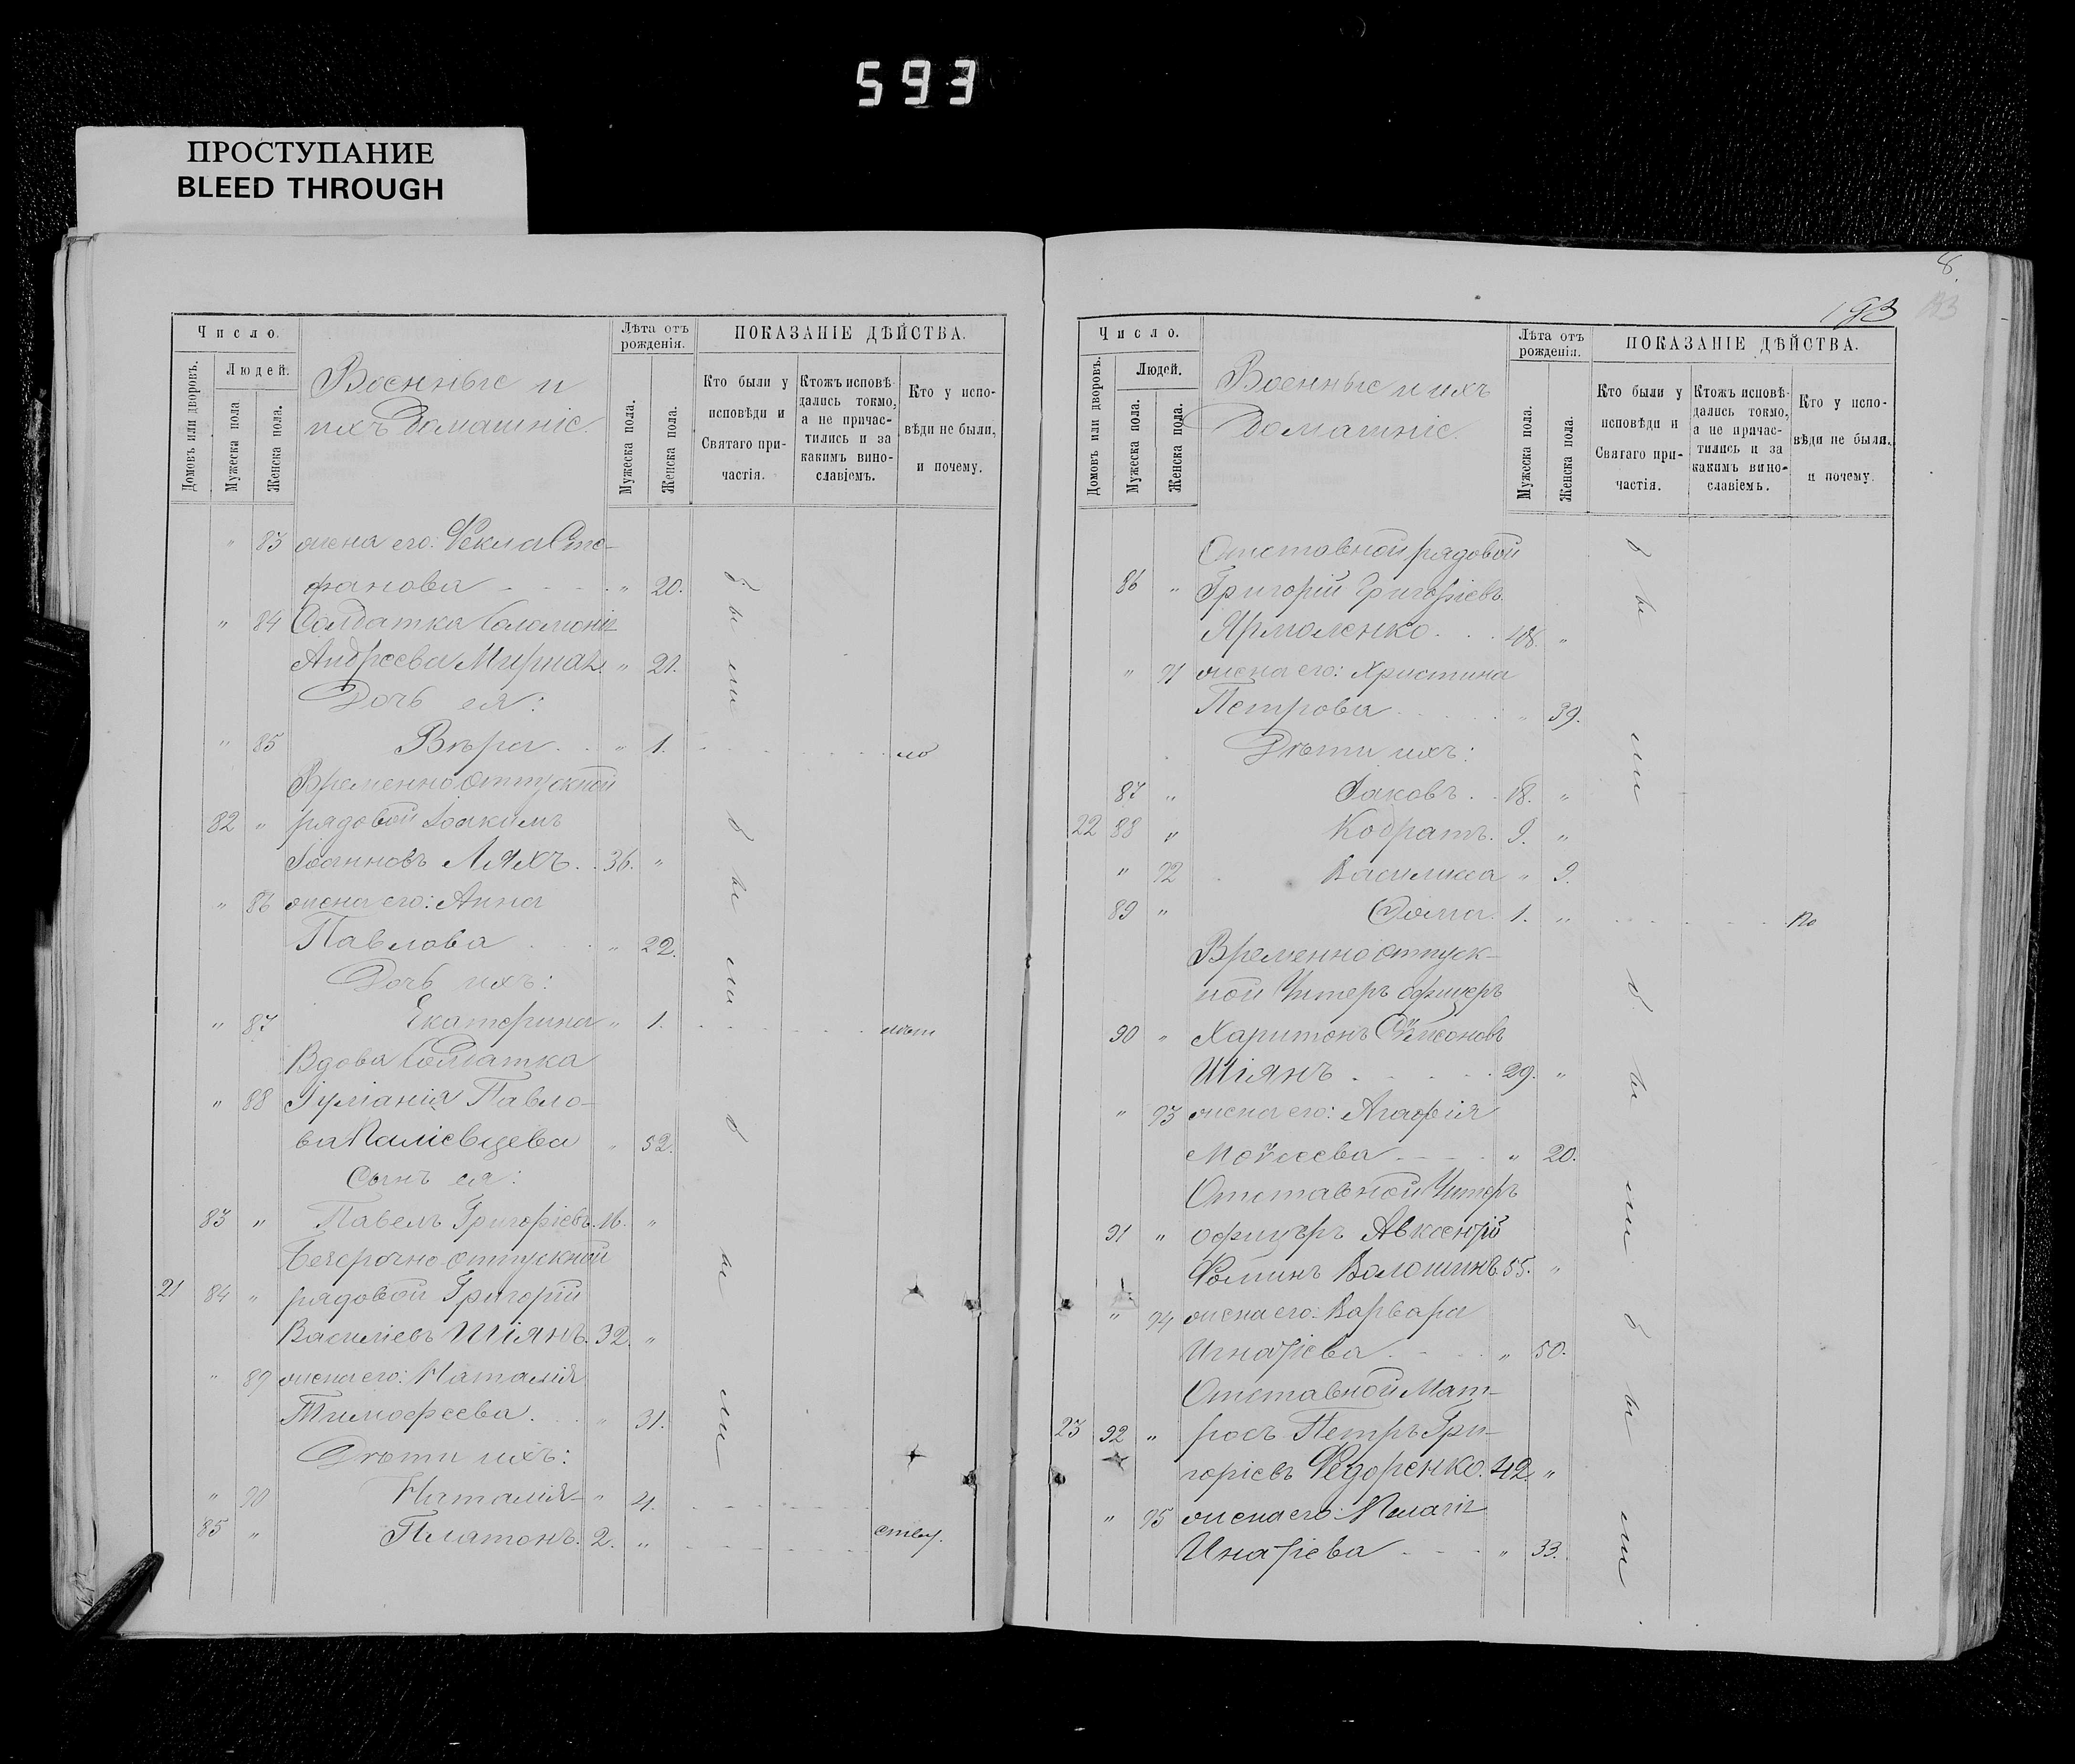 593
ПРОСТУПАНИЕ
BLEED THROUGH
Число.
Домовъ или дворовъ.
Людей.
Мужеска пола
Женска пола.
Военные и
ихъ Домашніе.
Лѣта отъ рожденія.
Мужеска пола.
Женска пола.
ПОКАЗАНІЕ ДѢЙСТВА.
Кто были у исповѣди и Святаго причастія.
Ктожъ исповѣдались токмо, а не причастились и за какимъ винославіемъ.
Кто у исповѣди не были, и почему.
" 83 жена его: Ѳекла Сте-
фанова " 20.
" 84 Солдатка Соломонія
Андреева " 21.
Дочь ея:
" 85 Вѣра " 1. по
Временно отпускной
82 " рядовой Іоакимъ
Іоанновъ Ляхъ. 36. "
" 86 жена его: Анна
Павлова " 22.
Дочь ихъ:
" 87 Екатерина " 1.
Вдова Солдатка
" 88 Іуліанія Павло-
ва " 52.
Сынъ ея:
83 " Павелъ Григоріевъ. 16. "
Безсрочно отпускной
21 84 " рядовой Григорій
Василіевъ Шіянъ. 32. "
" 89 жена его: Наталія
Тимофеева. " 31.
Дѣти ихъ:
" 90 Наталія " 4.
85 " Платонъ. 2. " ству.
были
были
были
8
193
Число.
Домовъ или дворовъ.
Людей.
Мужеска пола.
Женска пола.
Военные и ихъ
Домашніе.
Лѣта отъ рожденія.
Мужеска пола.
Женска пола.
ПОКАЗАНІЕ ДѢЙСТВА.
Кто были у исповѣди и Святаго причастія.
Ктожъ исповѣдались токмо, а не причастились и за какимъ винославіемъ.
Кто у исповѣди не были, и почему.
Отставной рядовой
86 " Григорій Григоріевъ
Ярмоленко. 48. "
" 91 жена его: Христина
Петрова " 39.
Дѣти ихъ:
87 " Іаковъ. 18. "
22 88 " Кодратъ. 9. "
" 92 Василисса " 9.
89 " Ѳома. 1. " по
Временно отпуск-
ной Унтеръ офицеръ
90 " Харитонъ
Шіянъ 29. "
" 93 жена его: Агафія
Мойсеева " 20.
Отставной Унтеръ
91 " офицеръ Авксентій
Ѳоминъ Волошинъ. 55. "
" 94 жена его: Варвара
Игнатіева " 50.
Отставной Мат-
23 92 " росъ Петръ Гри-
горіевъ Ѳедоренко. 42. "
" 95 жена его:
Игнатіева " 33.
были
были
были